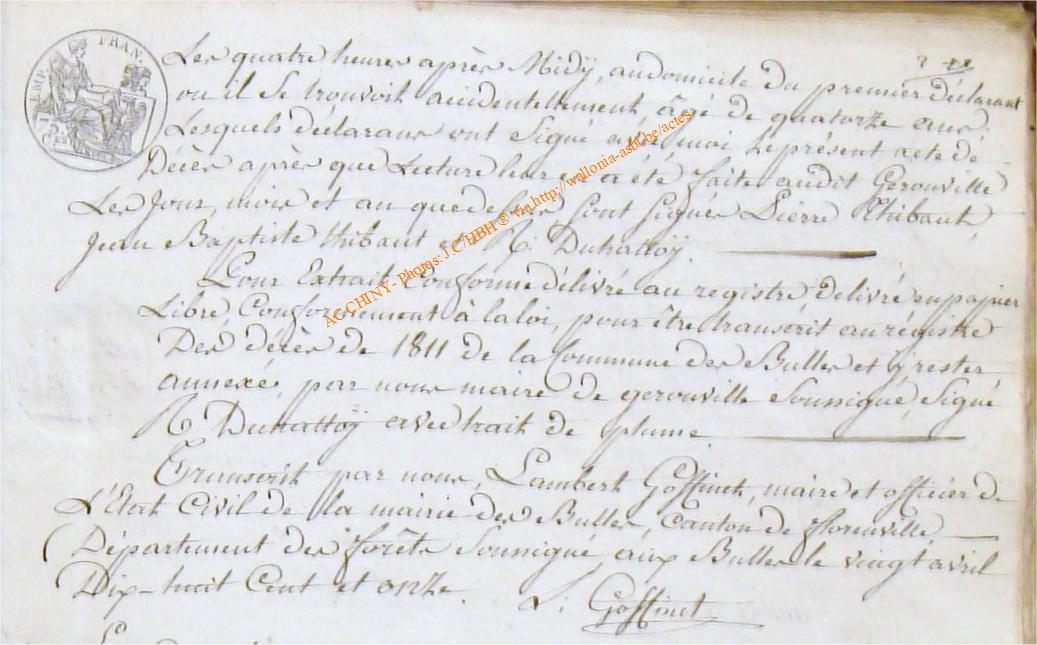 EMP. FRAN.
75 Ces
Les quatre heures après Midÿ, au domicile du premier déclarant
ou il se trouvoit accidentellement, âgé de quatorze ans.
Lesquels déclarans ont Signé avec moi le présent acte de
Décès après que Lecture leur a été faite audit Gerouville
Les Jour, mois et an que dessus Sont Signés Pierre Thibaut,
Jean Baptiste thibaut et N. Duhattoÿ.
Pour Extrait Conforme délivré au registre, delivré en papier
Libre Conformement à la loi, pour être transcrit au régistre
Des décès de 1811 de la Commune des Bulles et y rester
annexé, par nous maire de gerouville Soussigné, Signé
N. Duhattoÿ avec trait de plume.
Transcrit par nous, Lambert Goffinet, maire et officier de
L'Etat Civil de la mairie des Bulles, Canton de florenville,
Département des forêts Soussigné aux Bulles le vingt avril
Dix-huit Cent et onze. L. Goffinet
AGCHINY- Photos: J.C/HBH® via http://wallonia-asbl.be/actes